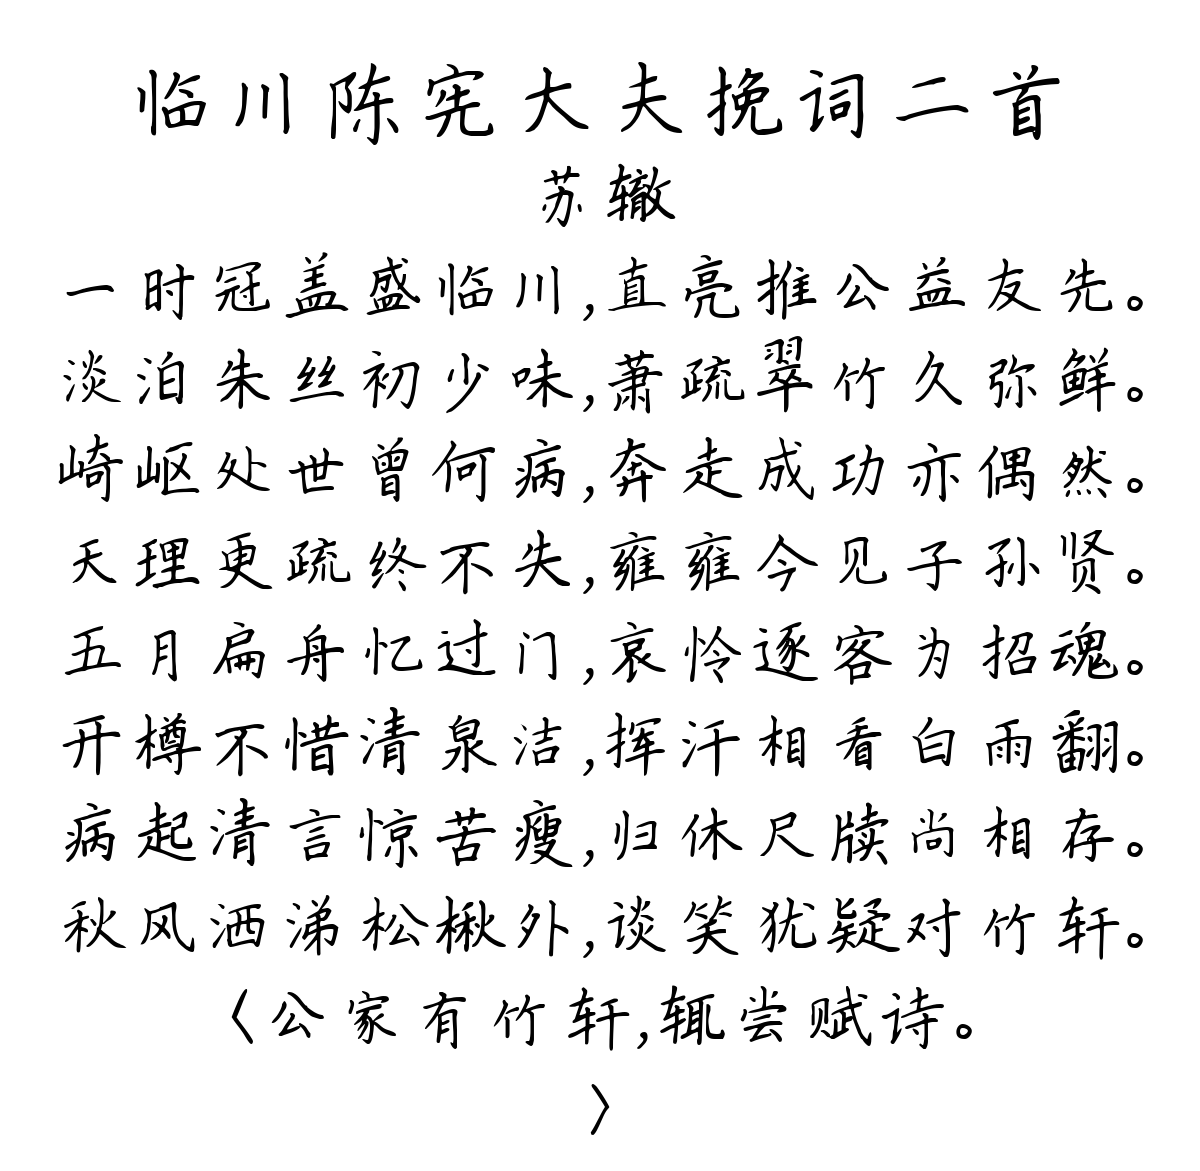 临川陈宪大夫挽词二首
苏辙
一时冠盖盛临川,直亮推公益友先。
淡泊朱丝初少味,萧疏翠竹久弥鲜。
崎岖处世曾何病,奔走成功亦偶然。
天理更疏终不失,雍雍今见子孙贤。
五月扁舟忆过门,哀怜逐客为招魂。
开樽不惜清泉洁,挥汗相看白雨翻。
病起清言惊苦瘦,归休尺牍尚相存。
秋风洒涕松楸外,谈笑犹疑对竹轩。
〈公家有竹轩,辄尝赋诗。
〉